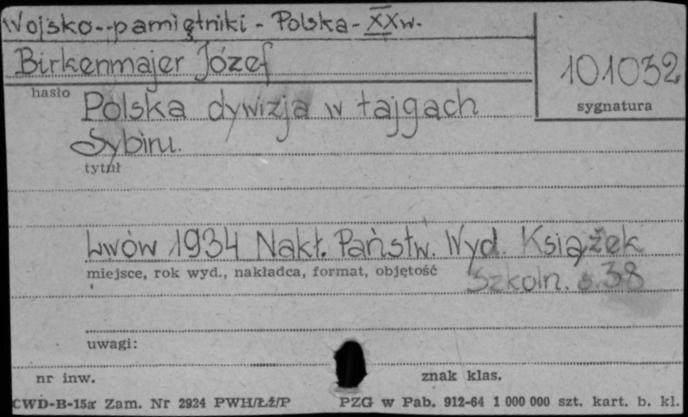 Wojsko--pamiętniki - Polska - XXw.
Birkenmajer Józef
101032
hasło
sygnatura
Polska dywizja w tajgach
Sybiru.
tytuł
Lwów 1934 Nakł. Państw. Wyd. Książek
miejsce, rok wyd., nakładca, format, objętość
Szkoln. s. 38
uwagi:
nr inw.
znak klas.
CWD-B-15a Zam. Nr 2924 PWH/Łż/P
PZG w Pab. 912-64 1 000 000 szt. kart. b. kl.